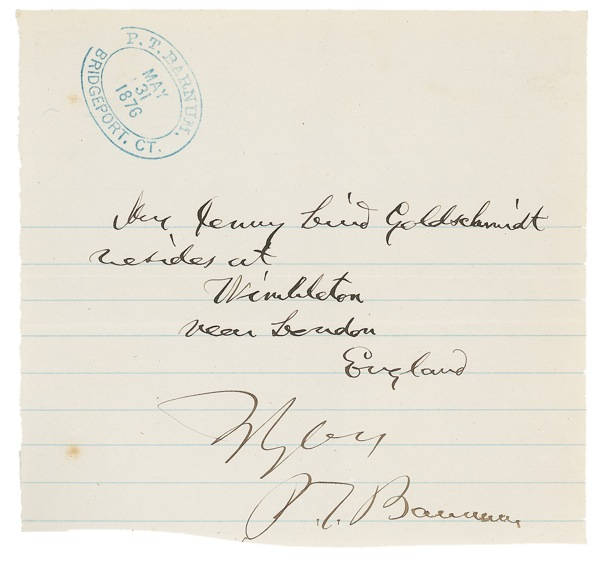 P. T. BARNUM.
MAY
31
1876
BRIDGEPORT, CT.
Mrs Jenny Lind Goldschmidt
resides at
Wimbleton
near London
England
P. T. Barnum